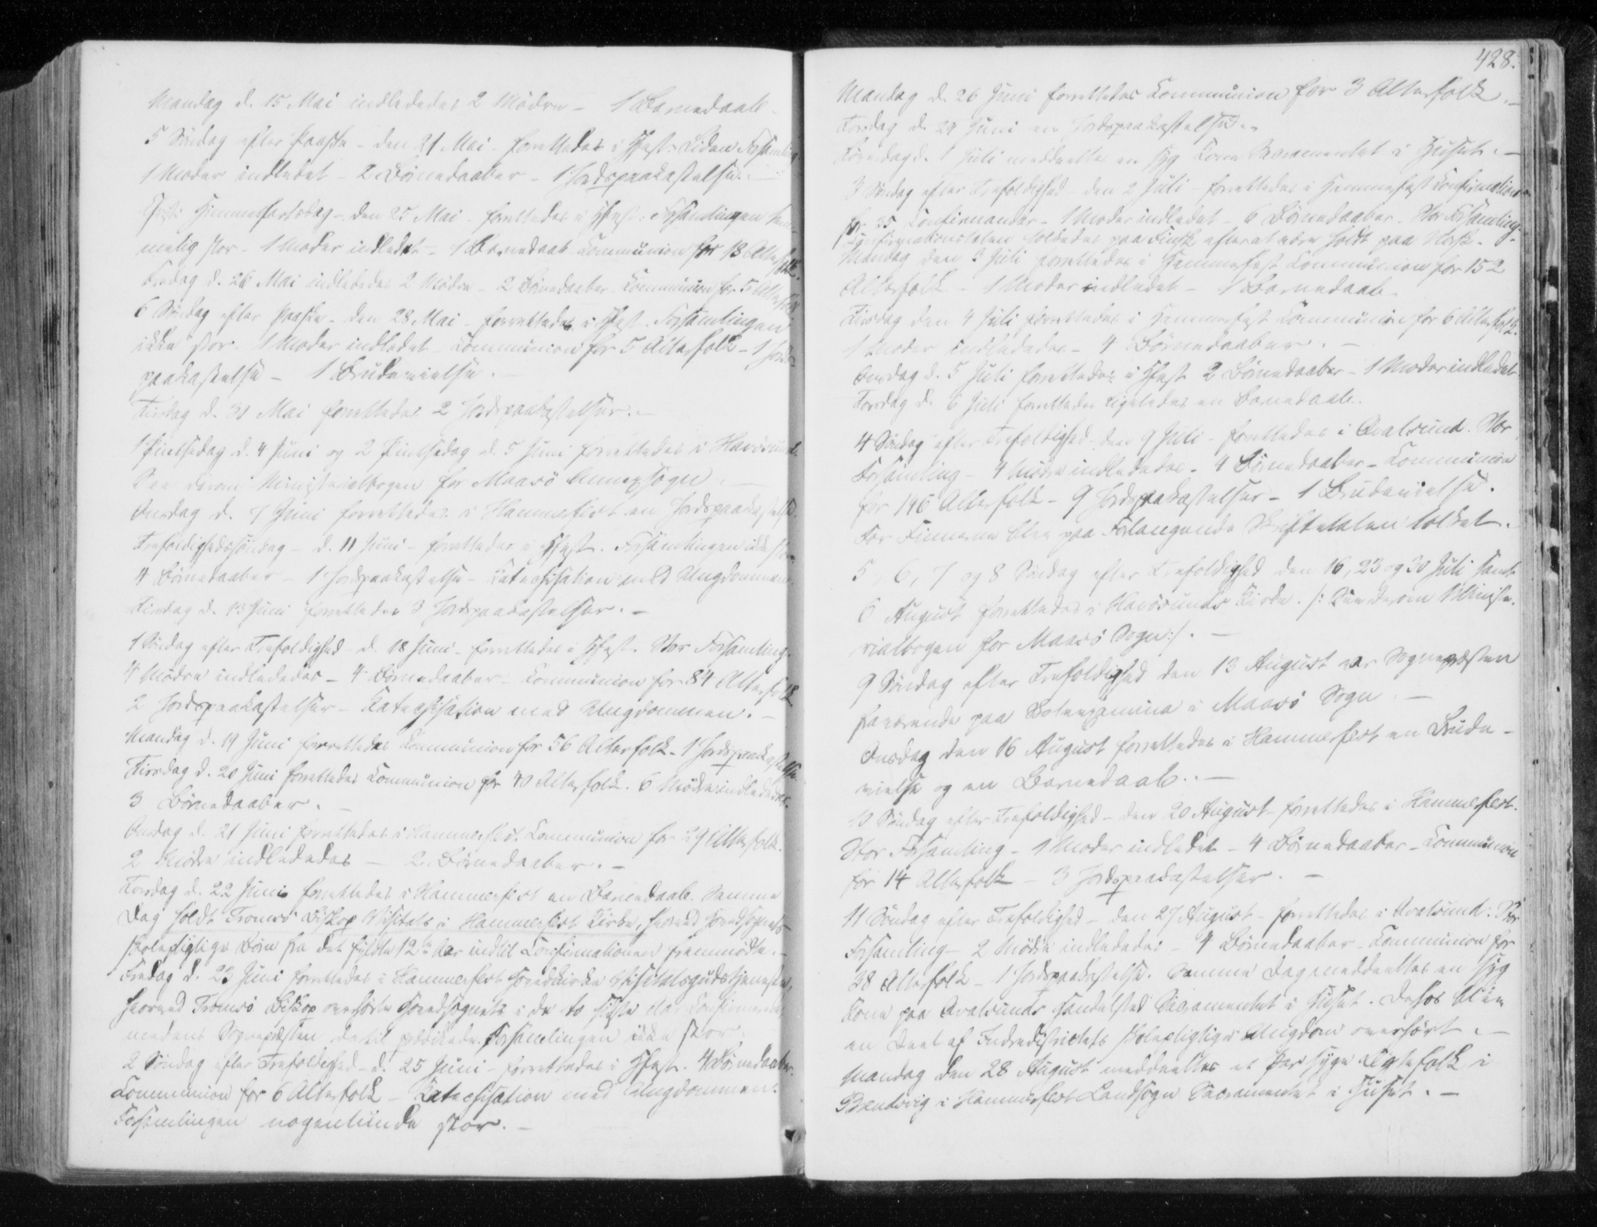 Mandag d. 15 Mai indlededes 2 Mødre - 1 Barnedaab.
5 Søndag efter Paaske - den 21 Mai - forrettedes i Hfest. Liden Forsamling
1 Moder indledet - 2 Børnedaaber - 1 Jordspaakastelse. -
Christi Himmelfartsdag - den 25 Mai - forrettedes i Hfest. Forsamlingen tem-
melig stor - 1 Moder indledet - 1 Barnedaab Communion for 13 Altersfolk.
Fredag d. 26 Mai indlededes 2 Mødre - 2 Børnedaaber. Communion for 5 Altersfolk
6 Søndag efter Paaske - den 28 Mai - forrettedes i Hfest. Forsamlingen
ikke stor. 1 Moder indledet - Communion for 5 Altersfolk - 1 Jords-
paakastelse - 1 Brudevielse. -
d. 31 Mai forrettedes 2 Jordspaakastelser. -
1 Pintsedag d. 4 Juni og 2 Pintsedag d. 5 Juni forrettedes i Havøsund.
See derom Ministerialbogen for Maasø Annexsogn. -
Onsdag d. 7 Juni forrettedes i Hammerfest en Jordspaakastelse.
Trefoldighedssøndag - d. 11 Juni - forrettedes i Hfest. Forsamlingen ikke stor
4 Børnedaaber - 1 Jordspaakastelse - Katechisation med Ungdommen
Tirsdag d. 13 Juni forrettedes 3 Jordspaakastelser. -
1 Søndag efter Trefoldighed - d. 18 Juni - forrettedes i Hfest. Stor Forsamling.
4 Mødre indlededes - 4 Børnedaaber - Communion for 84 Altersfolk
2 Jordspaakastelser - Katechisation med Ungdommen. -
Mandag d. 19 Juni forrettedes Communion for 56 Altersfolk - 1 Jordspaakastelse
Tirsdag d. 20 Juni forrettedes Communion for 40 Altersfolk. 6 Mødre indlededes.
3 Børnedaaber. -
Onsdag d. 21 Juni forrettedes i Hammerfest Communion for 29 Altersfolk.
2 Mødre indlededes - 2 Børnedaaber. -
Torsdag d. 22 Juni forrettedes i Hammerfest en Barnedaab. Samme
Dag holdt Tromsø Biskop Visitats i Hammerfest Kirke, hvorved Hovedsognets
skolepligtige Børn fra det fyldte 12te Aar indtil Confirmationen fremmødte. -
Fredag d. 23 Juni forrettedes i Hammerfest Hovedkirke Visitatsgudstjenesten,
hvorved Tromsø Biskop overhørte Hovedsognets i de to sidste Aar Confirmerede
medens Sognepræsten dertil prædikede. Forsamlingen ikke stor.
2 Søndag efter Trefoldighed - d. 25 Juni - forrettedes i Hfest. 4 Børnedaaber.
Communion for 6 Altersfolk - Katechisation med Ungdommen.
Forsamlingen nogenlunde stor. -
428.
Mandag d. 26 Juni forrettedes Communion for 3 Altersfolk. -
Torsdag d. 29 Juni en Jordspaakastelse. -
Løverdag d. 1 Juli meddeeltes en syg Kone Sacramentet i Huset. -
3 Søndag efter Trefoldighed - den 2 Juli - forrettedes i Hammerfest Confirmation
for 35 Confirmander - 1 Moder indledet - 6 Børnedaaber - Stor Forsamling.
Confirmationstalen holdtes paa Finsk efterat være holdt paa Norsk. -
Mandag den 3 Juli forrettedes i Hammerfest Communion for 152
Altersfolk - 1 Moder indledet - 1 Barnedaab.
Tirsdag den 4 Juli forrettedes i Hammerfest Communion for 6 Altersfolk.
1 Moder indlededes - 4 Børnedaaber. -
Onsdag d. 5 Juli forrettedes i Hfest 2 Børnedaaber - 1 Moder indledet
Torsdag d. 6 Juli forrettedes ligeledes en Barnedaab.
4 Søndag efter Trefoldighed - den 9 Juli - forrettedes i Qvalsund. Stor
Forsamling - 4 Mødre indlededes - 4 Børnedaaber - Communion
for 146 Altersfolk - 9 Jordspaakastelser - 1 Brudevielse.
For Finnerne blev paa Forlangende Skriftetalen tolket.
5, 6, 7 og 8 Søndag efter Trefoldighed den 16, 23 og 30 Juli samt
6 August forrettedes i Havøsunds Kirke. /: See derom Ministe-
rialbogen for Maasø Sogn :/. -
9 Søndag efter Trefoldighed den 13 August var Sognepræsten
fraværende paa i Maasø Sogn. -
Onsdag den 16 August forrettedes i Hammerfest en Brude-
vielse og en Barnedaab. -
10 Søndag efter Trefoldighed - den 20 August forrettedes i Hammerfest.
Stor Forsamling - 1 Moder indledet - 4 Børnedaaber - Communion
for 14 Altersfolk - 3 Jordspaakastelser. -
11 Søndag efter Trefoldighed - den 27 August - forrettedes i Qvalsund: Stor
Forsamling - 2 Mødre indlededes - 4 Børnedaaber - Communion for
28 Altersfolk - 1 Jordspaakastelse. Samme Dag meddeeltes en syg
Kone paa Qvalsunds Handelssted Sacramentet i Huset. Derhos blev
en Deel af Indredistrictets skolepligtige Ungdom overhørt. -
Mandag den 28 August meddeeltes et Par syge Ægtefolk i
i Hammerfest Landsogn Sacramentet i Huset. -